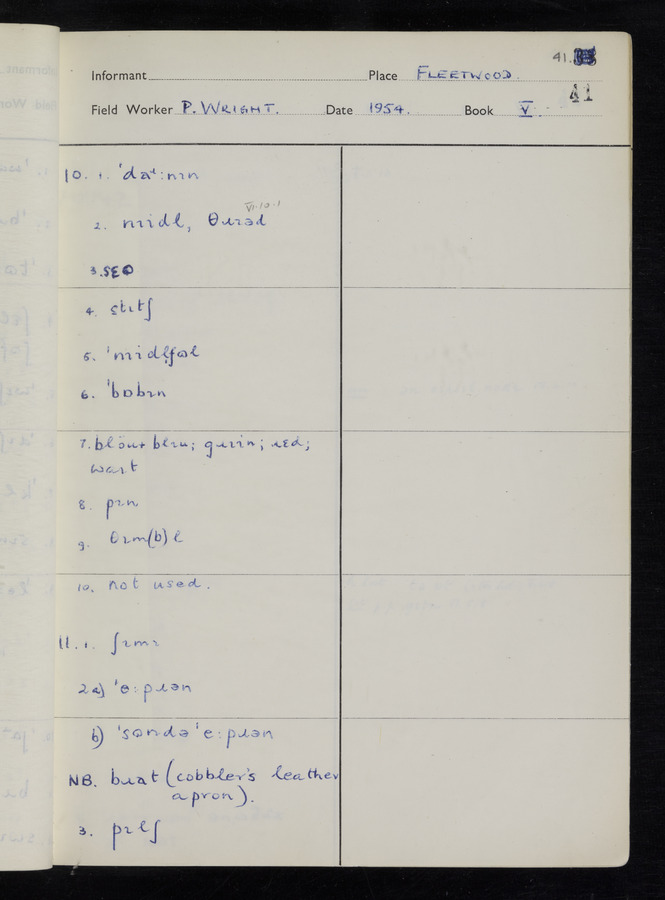 41.
Informant Place FLEETWOOD.
41
Field Worker P. WRIGHT. Date 1954. Book V.
10. 1. ˈdaˑᵗ:nɪn
VI.10.1
2. nɪidl, θɹɪəd
3. sɛɷ
4. stɪtʃ
5. ˈnɪidlfɷl
6. ˈbɒbɪn
7. blöu+ blɪu; gɹɪin; ɹɛd;
waɪt
8. pɪn
9. θɪm(b)l
10. not used.
11. 1. ʃɪmɪ
2a) ˈe:pɹən
b) ˈsɷndəˈe:pɹən
NB. bɹat (cobbler's leather
apron).
3. pɪlʃ